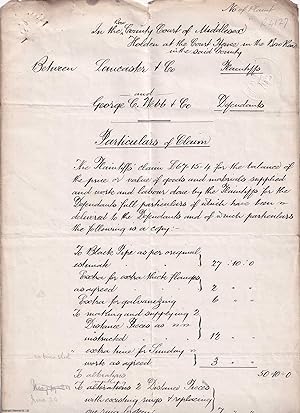 No of Plaint
In the County Court of Middlesex
Holden at the Court House in the
in the said County
Between Lancaster & Co Plaintiffs
and
George C. Webb & Co Defendants
Particulars of Claim
The Plaintiffs claim £67-15-4 for the balance of
the price or value of goods and materials supplied
and work and labour done by the Plaintiffs for the
Defendants full particulars of which have been
delivered to the Defendants and of which particulars
the following is a copy:-
To Black Pipe as per original
estimate 27 : 10 : 0
Extra for extra thick flanges
as agreed 2 " "
Extra for galvanizing 6 " "
To making and supplying 2
Distance Pieces as
instructed 12 " "
extra time for Sunday
work as agreed 3 " "
50 : 10 : 0
To alterations 2 Distance Pieces
with existing rings & replacing